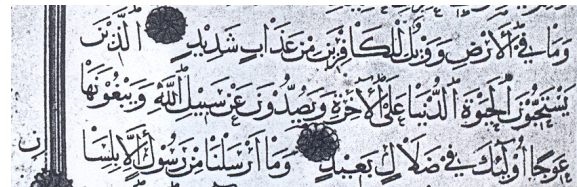 وَمَا فِي ٱلْأَرْضِ وَوَيْلٌ لِلْكَافِرِينَ مِنْ عَذَابٍ شَدِيدٍ ٱلَّذِينَ
يَسْتَحِبُّونَ ٱلْحَيٰوةَ ٱلدُّنْيَا عَلَى ٱلْآخِرَةِ وَيَصُدُّونَ عَنْ سَبِيلِ ٱللَّهِ وَيَبْغُونَهَا
عِوَجًا أُولَٰئِكَ فِي ضَلَالٍ بَعِيدٍ وَمَا أَرْسَلْنَا مِنْ رَسُولٍ إِلَّا بِلِسَا
ن